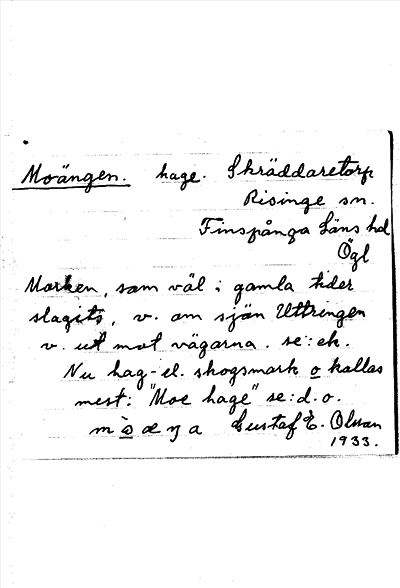 Moängen. hage. Skräddaretorp
Risinge sn.
Finspånga Läns hd
Ögl
Marken, som väl i gamla tider
slagits, v. om sjön Uttringen
v. ut mot vägarna. se: ek.
Nu hag- el. skogsmark o kallas
mest: "Moe hage" se: d. o.
Gustaf E. Olsson
1933.